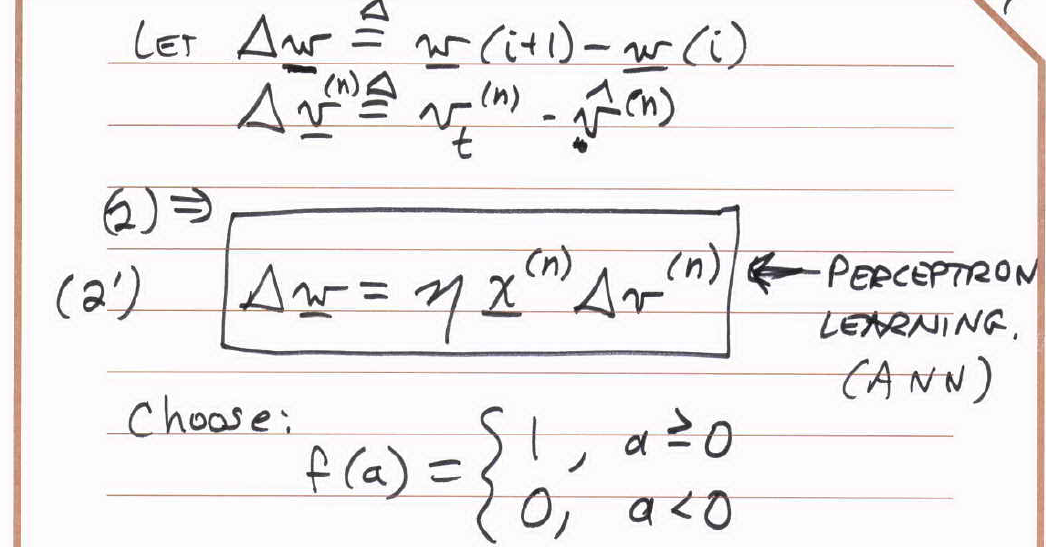 LET Δw ≜ w(i+1) - w(i)
Δv^(n) ≜ v_t^(n) - v̂^(n)
(2) ⇒
(2') Δw = η x^(n) Δv^(n) ← PERCEPTRON
LEARNING.
(ANN)
Choose:
f(a) = { 1, a ≥ 0
0, a < 0